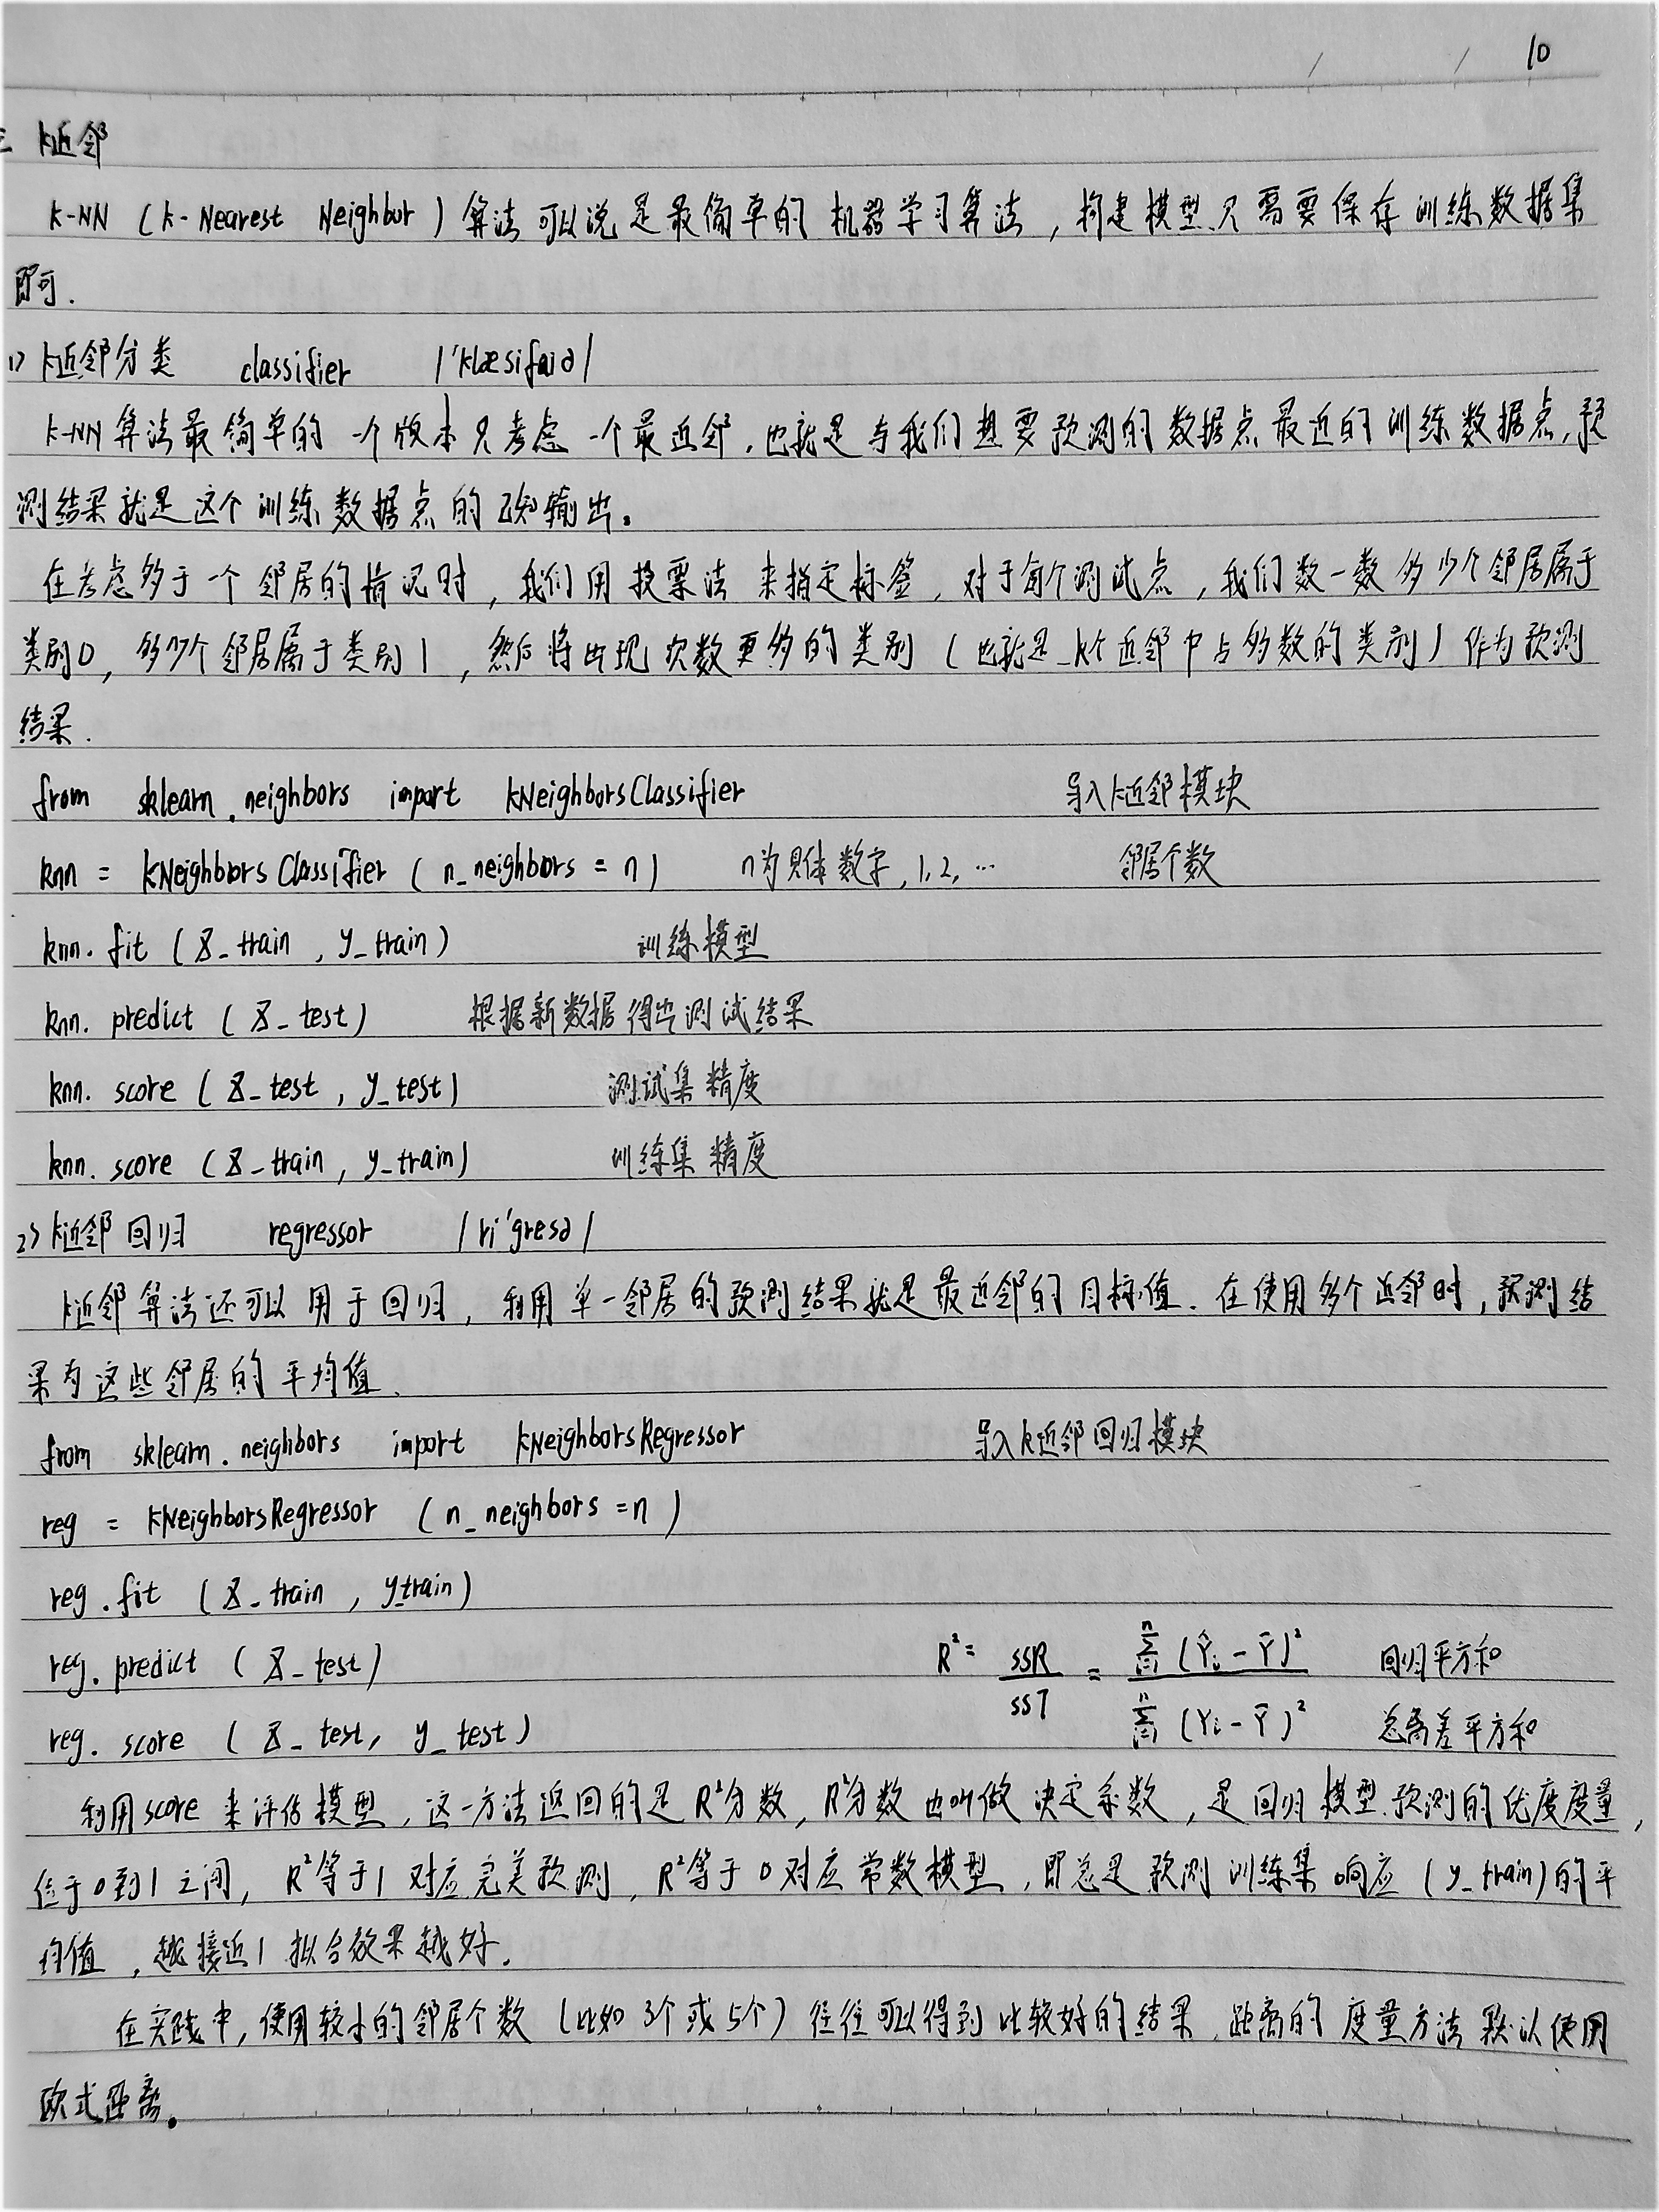 10
三 k近邻
k-NN (k-Nearest Neighbor) 算法可以说是最简单的机器学习算法，构建模型只需要保存训练数据集
即可.
1) k近邻分类 classifier /ˈklæsifaiə/
k-NN算法最简单的一个版本只考虑一个最近邻，也就是与我们想要预测的数据点最近的训练数据点，预
测结果就是这个训练数据点的已知输出。
在考虑多于一个邻居的情况时，我们用投票法来指定标签，对于每个测试点，我们数一数多少个邻居属于
类别0，多少个邻居属于类别1，然后将出现次数更多的类别（也就是k个近邻中占多数的类别）作为预测
结果.
from sklearn.neighbors import KNeighborsClassifier 导入k近邻模块
knn = KNeighborsClassifier (n_neighbors = n) n为具体数字，1,2,… 邻居个数
knn.fit (X_train, y_train) 训练模型
knn.predict (X_test) 根据新数据得出测试结果
knn.score (X_test, y_test) 测试集精度
knn.score (X_train, y_train) 训练集精度
2) k近邻回归 regressor /riˈgresə/
k近邻算法还可以用于回归，利用单一邻居的预测结果就是最近邻的目标值. 在使用多个近邻时，预测结
果为这些邻居的平均值.
from sklearn.neighbors import KNeighborsRegressor 导入k近邻回归模块
reg = KNeighborsRegressor (n_neighbors = n)
reg.fit (X_train, y_train)
reg.predict (X_test) R² = SSR/SST = Σⁿᵢ₌₁(Ŷᵢ - Ȳ)² / Σⁿᵢ₌₁(Yᵢ - Ȳ)² 回归平方和
reg.score (X_test, y_test) 总离差平方和
利用score来评估模型，这一方法返回的是R²分数，R²分数也叫做决定系数，是回归模型预测的优度度量，
位于0到1之间，R²等于1对应完美预测，R²等于0对应常数模型，即总是预测训练集响应（y_train）的平
均值，越接近1拟合效果越好.
在实践中，使用较小的邻居个数（比如3个或5个）往往可以得到比较好的结果，距离的度量方法默认使用
欧式距离。